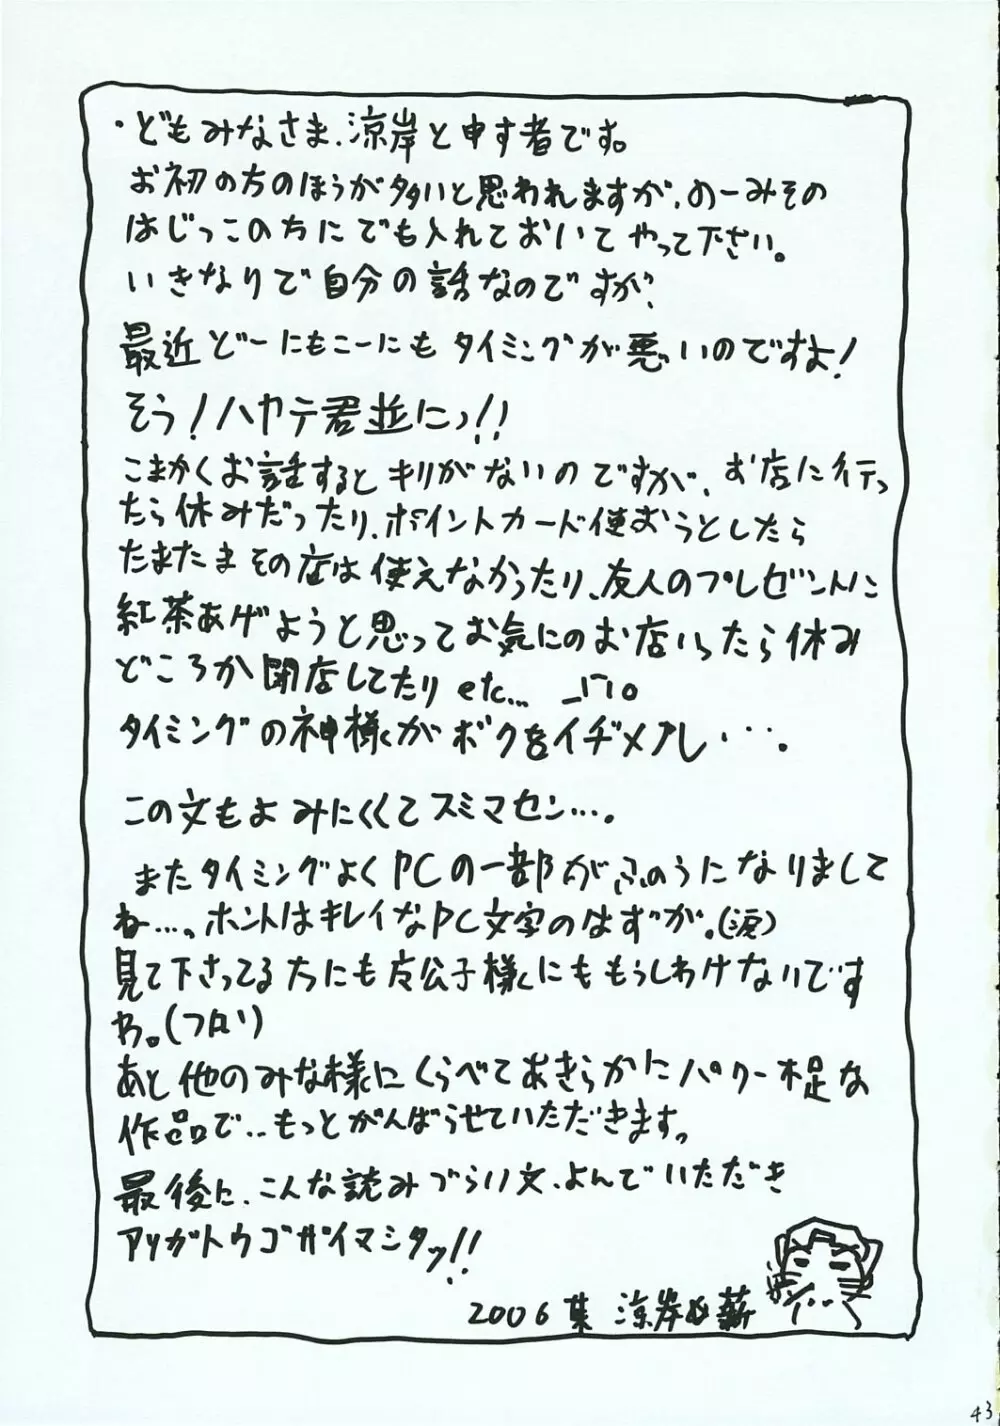 ・どもみなさま、涼岸と申す者です。
お初の方のほうが多いと思われますが、のーみその
はじっこの方にでも入れておいてやって下さい。
いきなりで自分の話なのですが?
最近どーにもこーにもタイミングが悪いのですよ!
そう!ハヤテ君並にっ!!
こまかくお話するとキリがないのですが、お店に行っ
たら休みだったり、ポイントカード使おうとしたら
たまたまその店は使えなかったり、友人のプレゼントに
紅茶あげようと思ってお気にのお店いったら休み
どころか閉店してたり etc...
タイミングの神様がボクをイヂメルし・・・。
この文もよみにくくてスミマセン…。
またタイミングよくPCの一部がふのうになりまして
ね…。ホントはキレイなPC文字のはずが。(涙)
見て下さってる方にも 公子様にももうしわけないです
わ。
あと他のみな様にくらべてあきらかにパワー不足な
作品で‥もっとがんばらせていただきます。
最後に、こんな読みづらい文、よんでいただき
アリガトウゴザイマシタッ!!
2006 涼岸 薪
43